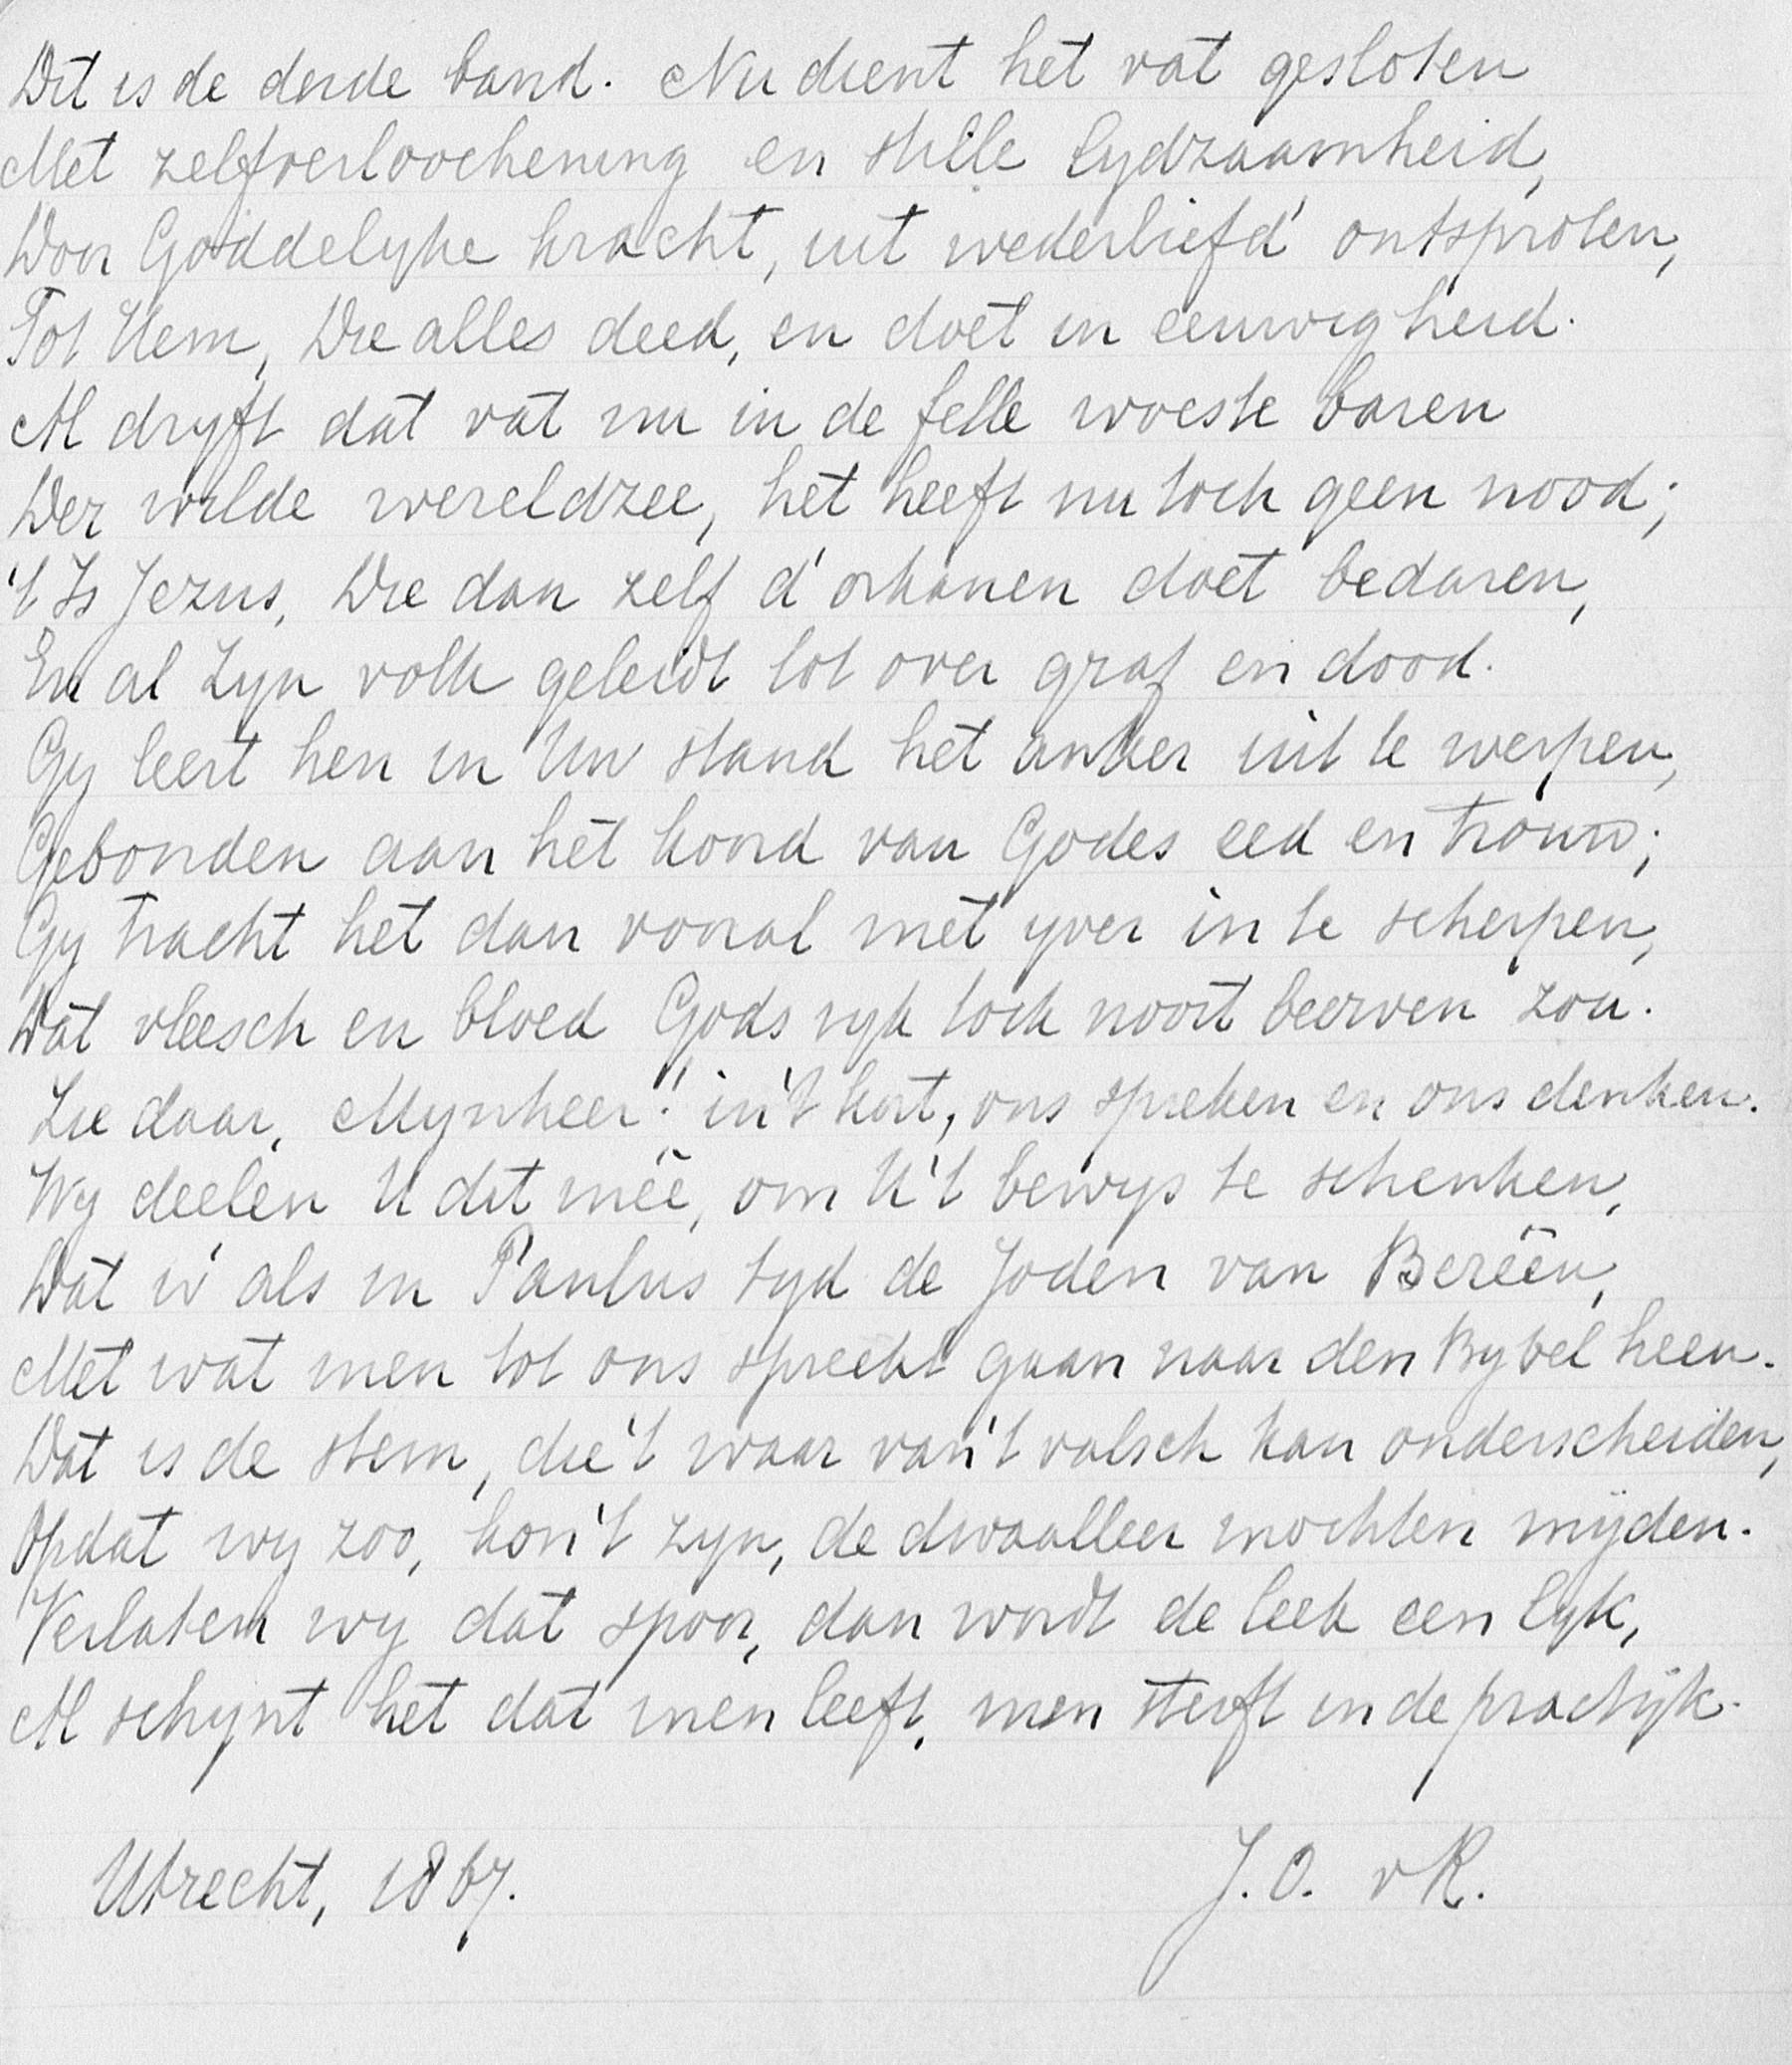 Dit is de derde band. Nu dient het vat gesloten
Met zelfverloochening en stille lydzaamheid,
Door Goddelyke kracht, uit wederliefd' ontsproten,
Tot Hem, Die alles deed, en doet in eeuwigheid.
Al dryft dat vat nu in de felle woeste baren
Der wilde wereldzee, het heeft nu toch geen nood;
't Is Jezus, Die dan zelf d' orkanen doet bedaren,
En al Zyn volk geleidt tot over graf en dood.
Gy leert hen in Uw stand het anker uit te werpen,
Gebonden aan het koord van Godes eed en trouw;
Gy tracht het dan vooral met yver in te scherpen,
Dat vleesch en bloed Gods ryk toch nooit beerven zou.
Zie daar, Mynheer! in 't kort, ons spreken en ons denken.
Wy deelen U dit meê, om U 't bewys te schenken,
Dat w' als in Paulus tyd de Joden van Bereën,
Met wat men tot ons spreekt gaan naar den Bybel heen.
Dat is de stem, die 't waar van 't valsch kan onderscheiden,
Opdat wy zoo, kon 't zyn, de dwaalleer mochten mijden.
Verlaten wy dat spoor, dan wordt de leek een lyk,
Al schynt het dat men leeft, men sterft in de practijk.
Utrecht, 1867.
J. O. v R.